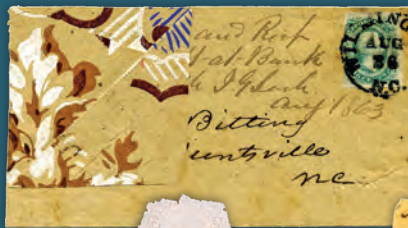 and Rec't
at Bank
J G Lash
Aug 1863
Bitting
untsville
NC
WILMING
AUG
N.C.